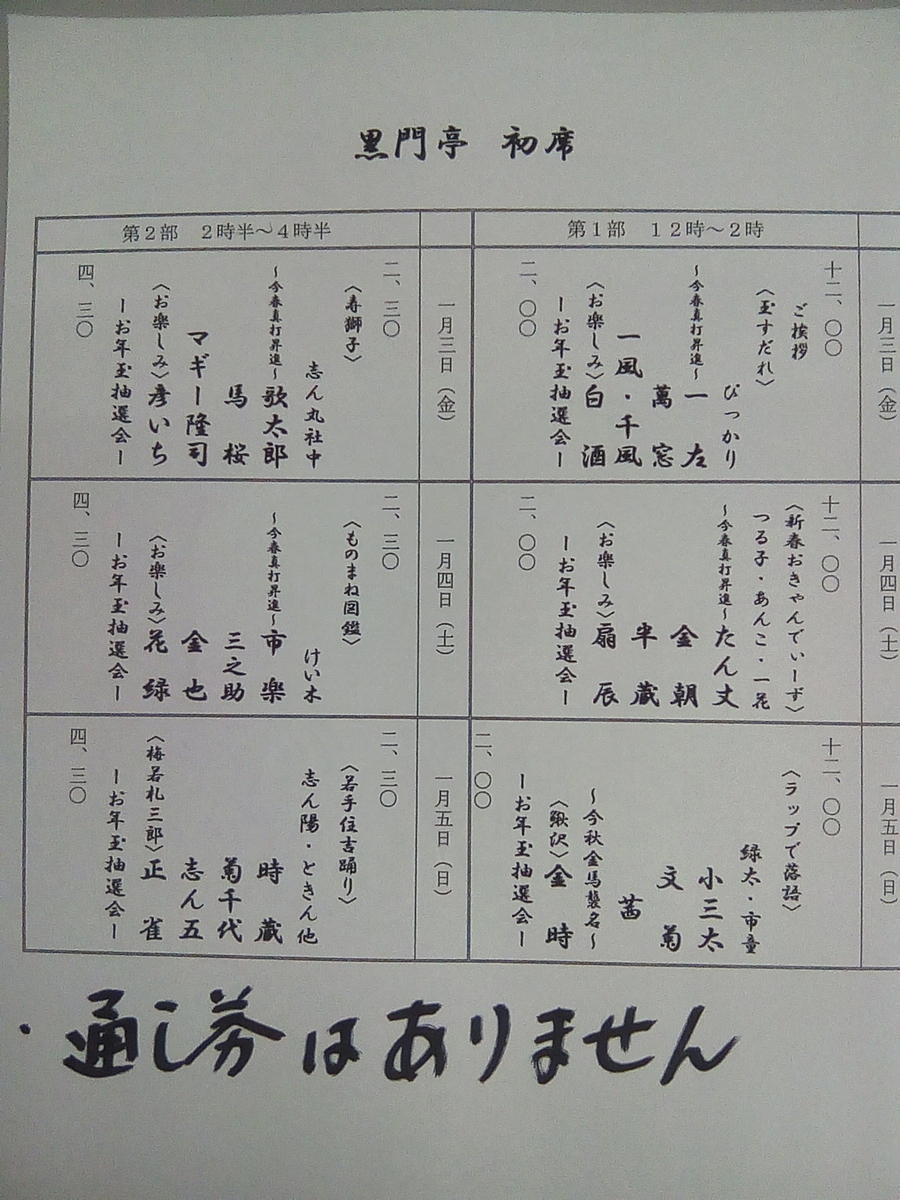 黒門亭 初席
第1部 12時~2時
第2部 2時半~4時半
一月三日(金)
十二、〇〇
ご挨拶
〈玉すだれ〉
ぴっかり
~今春真打昇進~一左
萬窓
一風・千風
〈お楽しみ〉白酒
ーお年玉抽選会ー
二、〇〇
一月三日(金)
二、三〇
〈寿獅子〉
志ん丸社中
~今春真打昇進~歌太郎
馬桜
マギー隆司
〈お楽しみ〉彦いち
ーお年玉抽選会ー
四、三〇
一月四日(土)
十二、〇〇
〈新春おきゃんでぃーず〉
つる子・あんこ・一花
~今春真打昇進~たん丈
金朝
半蔵
〈お楽しみ〉扇辰
ーお年玉抽選会ー
二、〇〇
一月四日(土)
二、三〇
〈ものまね図鑑〉
けい木
~今春真打昇進~市楽
三之助
金也
〈お楽しみ〉花緑
ーお年玉抽選会ー
四、三〇
一月五日(日)
十二、〇〇
〈ラップで落語〉
緑太・市童
小三太
文菊
茜
~今秋金馬襲名~
〈鰍沢〉金時
ーお年玉抽選会ー
二、〇〇
一月五日(日)
二、三〇
〈若手住吉踊り〉
志ん陽・ときん他
時蔵
菊千代
志ん五
〈梅若礼三郎〉正雀
ーお年玉抽選会ー
四、三〇
・通し券はありません